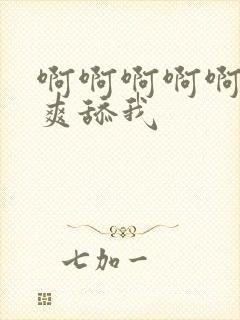 啊啊啊啊啊
爽舔我
七加一